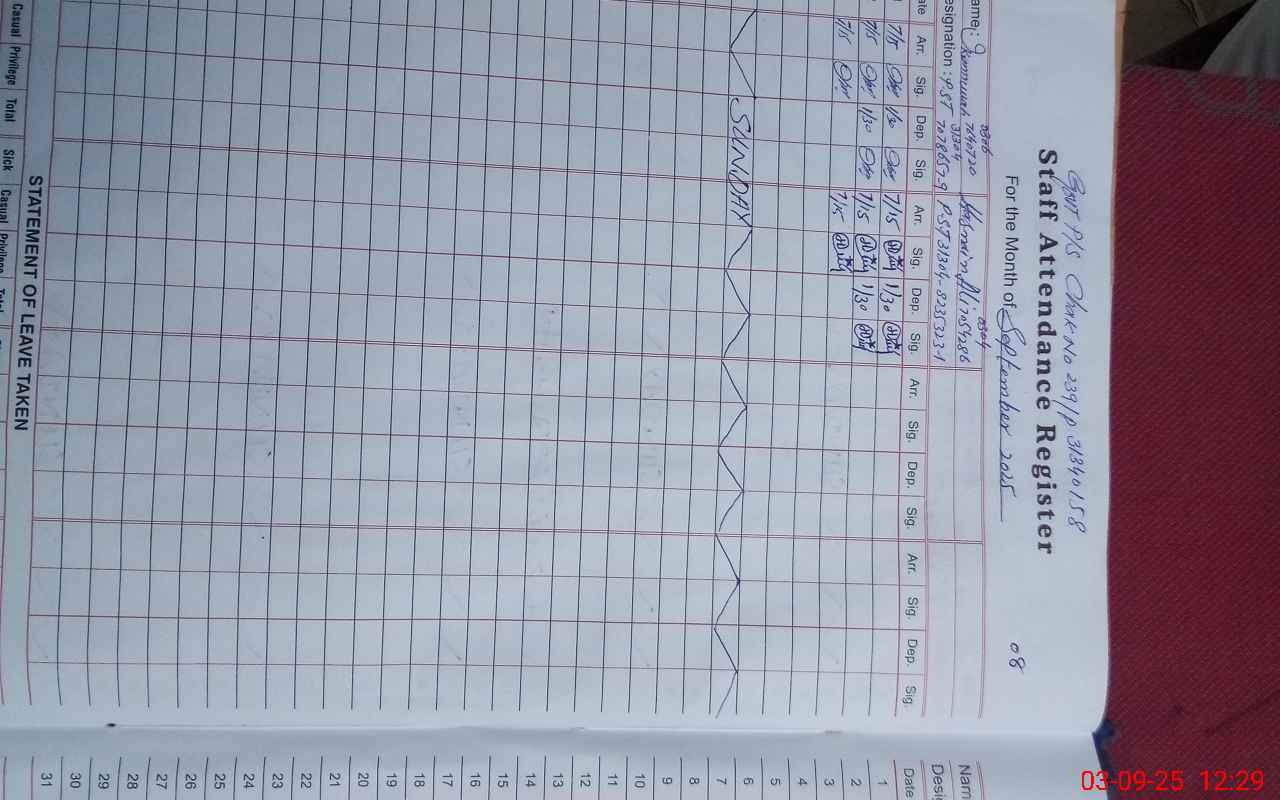 Govt P/S Chak No 239/P 31340158
Staff Attendance Register
For the Month of September 2025 08
ame: 0306 7640720 Hasnain Ali 0304 7054286
esignation: PST 31304 7078657-9 PST 31304-8235323-1
ate Arr. Sig. Dep. Sig. Arr. Sig. Dep. Sig. Arr. Sig. Dep. Sig. Arr. Sig. Dep. Sig.
7/15 1/30 7/15 1/30
7/15 1/30 7/15 1/30
7/15 7/15
SUNDAY
STATEMENT OF LEAVE TAKEN
Casual Privilege Total Sick Casual Privilege Total
Nam
Desig
Date
1
2
3
4
5
6
7
8
9
10
11
12
13
14
15
16
17
18
19
20
21
22
23
24
25
26
27
28
29
30
31
03-09-25 12:29